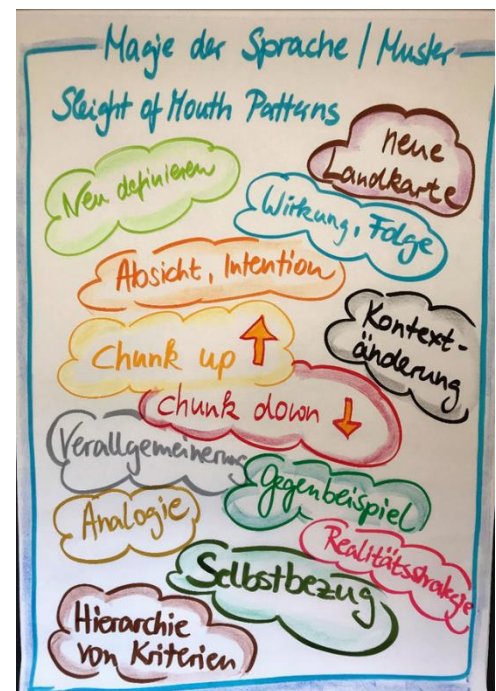 Magie der Sprache / Muster
Sleight of Mouth Patterns
neue
Landkarte
Neu definieren
Wirkung, Folge
Absicht, Intention
Kontext-
änderung
Chunk up
chunk down
Verallgemeinerung
Gegenbeispiel
Analogie
Realitätsstrategie
Selbstbezug
Hierarchie
von Kriterien